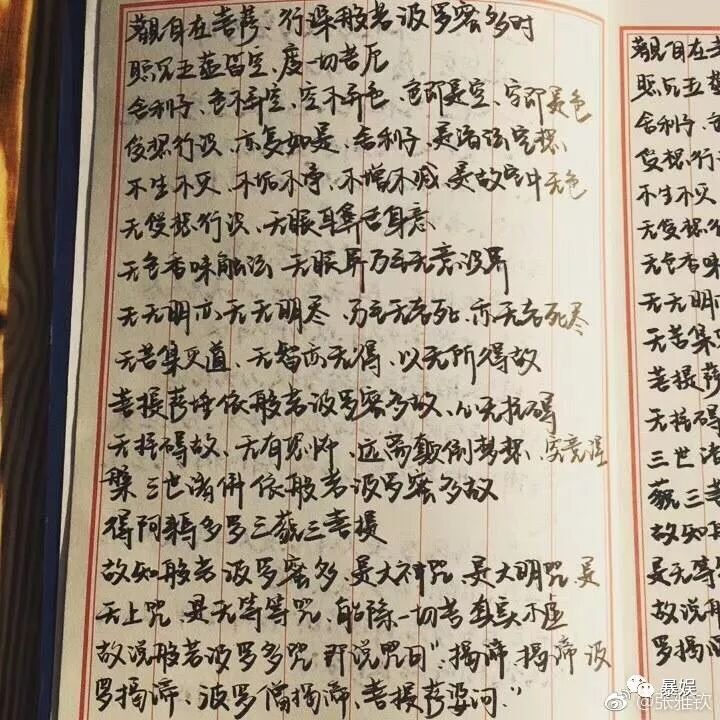 觀自在菩萨、行深般若波罗蜜多时
照见五蕴皆空、度一切苦厄
舍利子、色不异空、空不异色、色即是空、空即是色
受想行识、亦复如是、舍利子、是诸法空想、
不生不灭、不垢不净、不增不减、是故空中无色
无受想行识、无眼耳鼻舌身意
无色香味触法 无眼界乃至无意识界
无无明亦无无明尽、乃至无老死、亦无老死尽
无苦集灭道、无智亦无得、以无所得故
菩提萨埵依般若波罗蜜多故、心无挂碍
无挂碍故、无有恐怖、远离颠倒梦想、究竟涅
槃 三世诸佛依般若波罗蜜多故
得阿耨多罗三藐三菩提
故知般若波罗蜜多、是大神咒 是大明咒、是
无上咒、是无等等咒、能除一切苦 真实不虚
故说般若波罗多咒 即说咒曰“、揭谛 揭谛 波
罗揭谛、波罗僧揭谛、菩提萨婆诃。”
觀自在菩
照见五蕴
舍利子、色
受想行识
不生不灭
无受想行
无色香味
无无明
无苦集
菩提萨
无挂碍
三世诸
藐三菩
故知
是无等
故说
罗揭谛
暴娱
@张雅钦